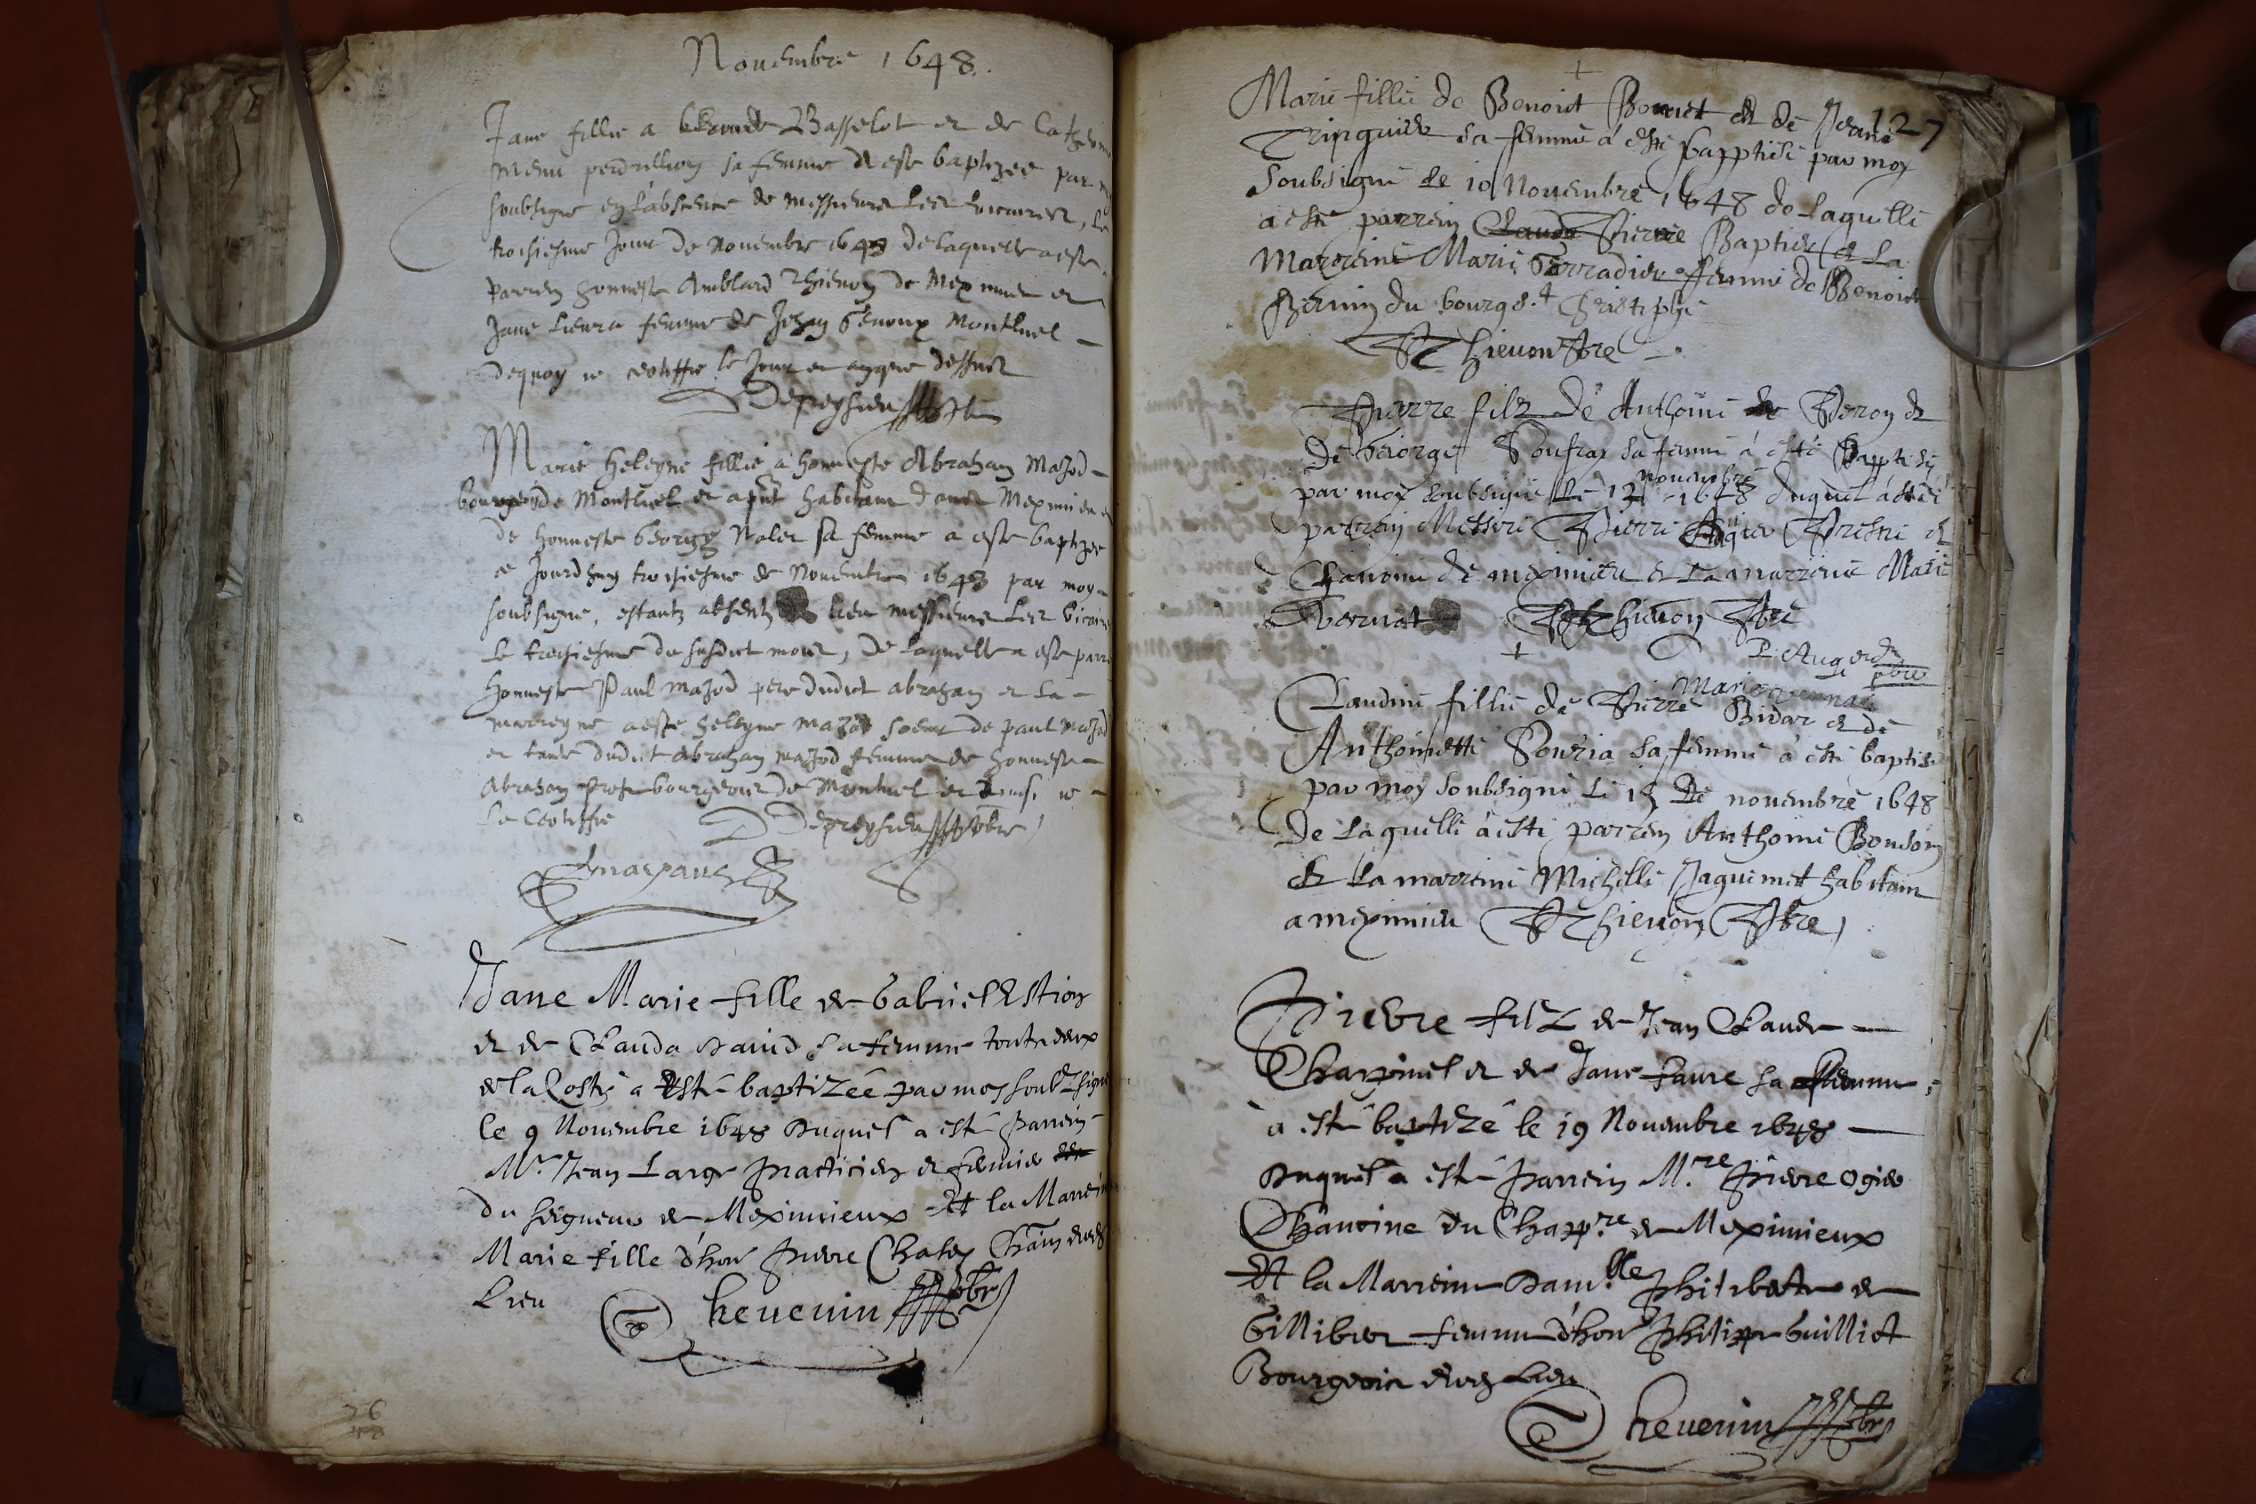 Novembre 1648.
Jane fillie a Basselot et de Catherine
perdrillion sa femme a este baptizee par moy
soubsigne en l'absence de messieurs les vicaires, le
troisiesme Jour de Novembre 1648 de laquelle a este
parrein honneste Amblard Thienon de Meximieu et
Jane femme de Jehan Genoux Montluel
dequoy ie certiffie le Jour et an que dessus
Depreysieu
Marie Heleyne fillie a honneste Abraham Majod
bourgeois de Montluel et a pnt habitant dans Meximieu et
de honneste George sa femme a este baptizee
ce Jourdhuy troisiesme de Novembre 1648 par moy
soubsigne, estantz absentz messieurs les vicaires
le troisiesme du susdict mois, de laquelle a este parrein
honneste Paul Majod pere dudict abraham et la
marreyne a este heleyne majod soeur de paul majod
et tante dudict abraham majod femme de honneste
Abraham bourgeois de Montluel et ainsi ie
le certiffie Depreysieu pbre
Jane Marie fille de Gabriel Estion
et de Clauda David sa femme toute deux
de la Coste a Esté baptizée par moy soubsigne
le 9 Novembre 1648 Duquel a esté parrein
Mr. Jean Large practicien et fermier
du seigneur de Meximieux Et la Marreine
Marie fille d'hon pierre Chaley
Lieu Thevenin pbr
127
Marie fillie de Benoict Bonnet et de Jeane
Tringuier sa femme a esté bapptisé par moy
Soubsigné le 10 Novembre 1648 de laquelle
a esté parrein Claude Pierre Baptier et la
Marreine Marie Terradier femme de Benoict
du bourg St Cristophe
Thievon Pbre
Pierre filz de Anthoine Peron et
de George Poufray sa femme a esté bapptisé
par moy soubsigné le 12 novembre 1648 duquel a esté
parrein Messire Pierre Augier Prestre et
Chanoine de meximieu et la marreine Marie
Vernat Thievon Pbre
P. Augier pbre
Marie vernat
Claudine fillie de Pierre Bidar et de
Anthoinette Pouzia sa femme a esté baptisé
par moy soubsigné le 15 De novembre 1648
De laquelle a esté parrein Anthoine Boudon
et la marreine Michelle Jaquemet habitant
a meximieu Thievon Pbre
Pierre filz de Jean Claude
Chappuis et de Jane Favre sa femme
a esté baptizé le 19 Novembre 1648
Duquel a esté parrein M.re pierre Ogier
Chanoine du Chapp.re de Meximieux
Et la Marreine Dam.lle philiberte de
Gillibert femme d'hon philippe Guilliot
Bourgeois dudict Lieu
Thevenin pbr